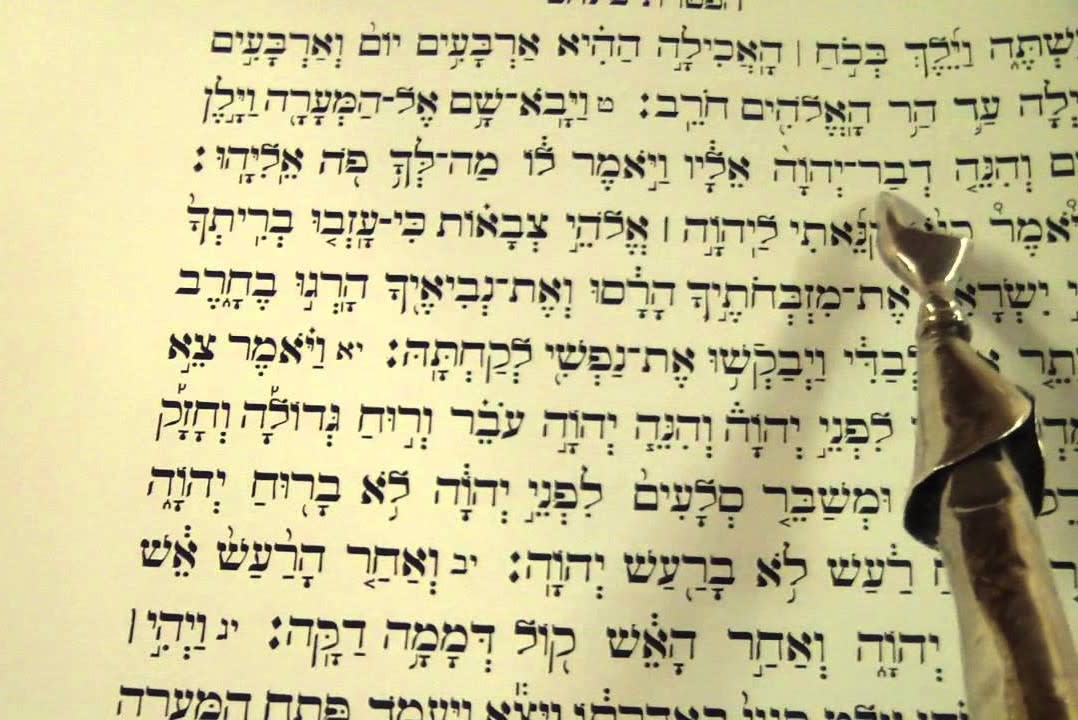 שְׁתֶּ֑ה וַיֵּ֜לֶךְ בְּכֹ֣חַ ׀ הָאֲכִילָ֣ה הַהִ֗יא אַרְבָּעִ֥ים יוֹם֙ וְאַרְבָּעִ֣ים
יְלָה עַ֛ד הַ֥ר הָאֱלֹהִ֖ים חֹרֵֽב׃ ט וַיָּבֹא־שָׁ֥ם אֶל־הַמְּעָרָ֖ה וַיָּ֣לֶן
ם וְהִנֵּ֤ה דְבַר־יְהוָה֙ אֵלָ֔יו וַיֹּ֣אמֶר ל֔וֹ מַה־לְּךָ֥ פֹ֖ה אֵלִיָּֽהוּ׃
יֹּאמֶר֩ קִנֵּ֜אתִי לַיהוָ֣ה ׀ אֱלֹהֵ֣י צְבָא֗וֹת כִּֽי־עָזְב֤וּ בְרִֽיתְךָ֙
יִשְׂרָאֵ אֶת־מִזְבְּחֹתֶ֣יךָ הָרָ֔סוּ וְאֶת־נְבִיאֶ֖יךָ הָרְג֣וּ בֶחָ֑רֶב
תֵ֤ר לְבַדִּ֔י וַיְבַקְשׁ֥וּ אֶת־נַפְשִׁ֖י לְקַחְתָּֽהּ׃ יא וַיֹּ֗אמֶר צֵ֣א
לִפְנֵ֣י יְהוָה֒ וְהִנֵּ֧ה יְהוָ֣ה עֹבֵ֗ר וְר֣וּחַ גְּדוֹלָ֡ה וְחָזָ֞ק
וּמְשַׁבֵּ֤ר סְלָעִים֙ לִפְנֵ֣י יְהוָ֔ה לֹ֥א בָר֖וּחַ יְהוָ֑ה
רַ֔עַשׁ לֹ֥א בָרַ֖עַשׁ יְהוָֽה׃ יב וְאַחַ֤ר הָרַ֙עַשׁ֙ אֵ֔שׁ
יְהוָ֑ה וְאַחַ֣ר הָאֵ֔שׁ ק֖וֹל דְּמָמָ֥ה דַקָּֽה׃ יג וַיְהִ֣י ׀
בְּאַדַּרְתּ֔וֹ וַיֵּצֵ֕א וַֽיַּעֲמֹ֖ד פֶּ֣תַח הַמְּעָרָ֑ה